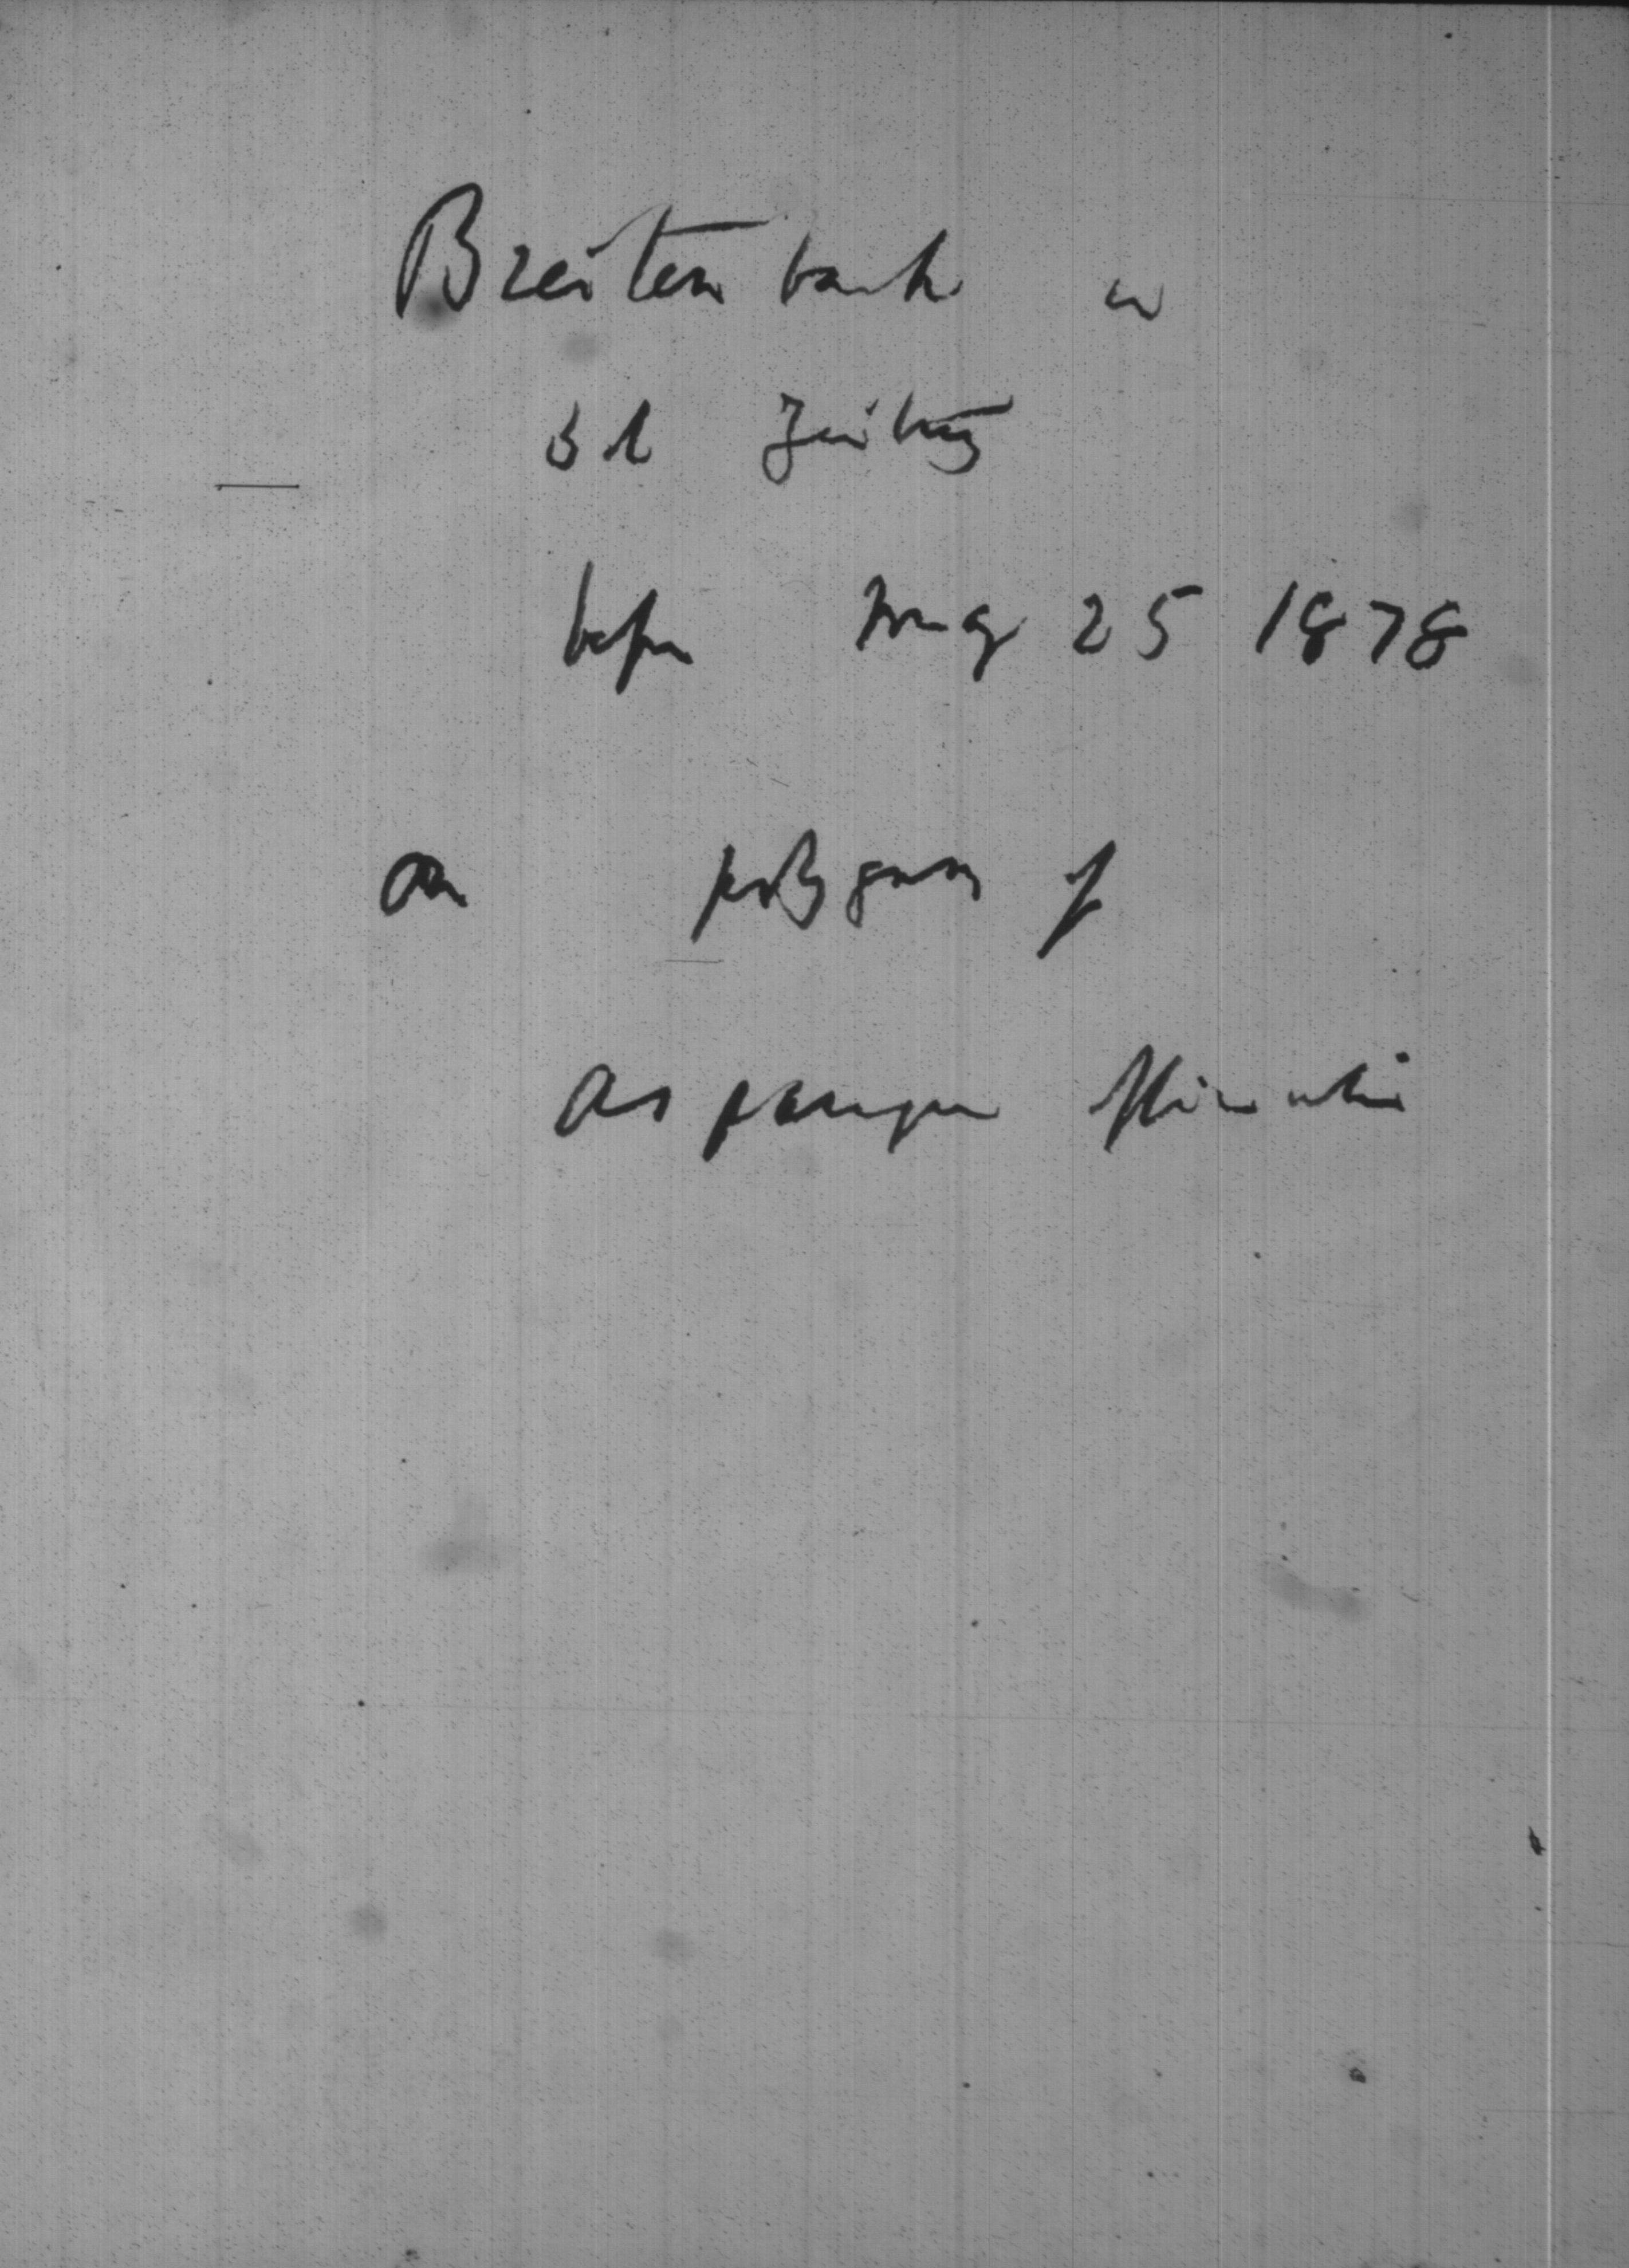 Breitenbach in
Bot Zeitung
before May 25 1878
on polygamy of
Asparagus officinalis